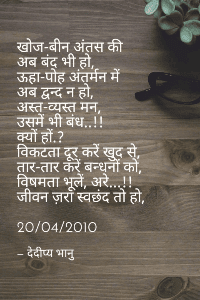 खोज-बीन अंतस की
अब बंद भी हो,
ऊहा-पोह अंतर्मन में
अब द्वन्द न हो,
अस्त-व्यस्त मन,
उसमें भी बंध..!!
क्यों हों.?
विकटता दूर करें खुद से,
तार-तार करें बन्धनों को,
विषमता भूलें, अरे...!!
जीवन ज़रा स्वछंद तो हो,
20/04/2010
– देदीप्य भानु